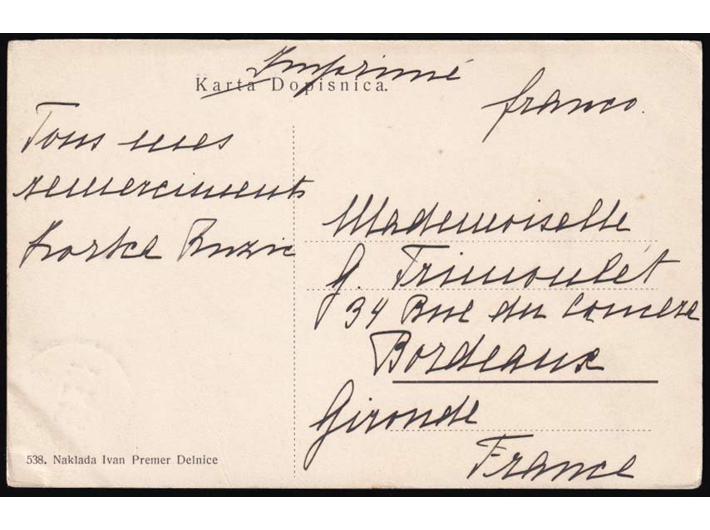 Imprimé
Karta Dopisnica.
franco.
Tous mes
remerciments
Zorka Ruzic
Mademoiselle
G. Trimoulet
34 Rue du
Bordeaux
Gironde
France
538. Naklada Ivan Premer Delnice